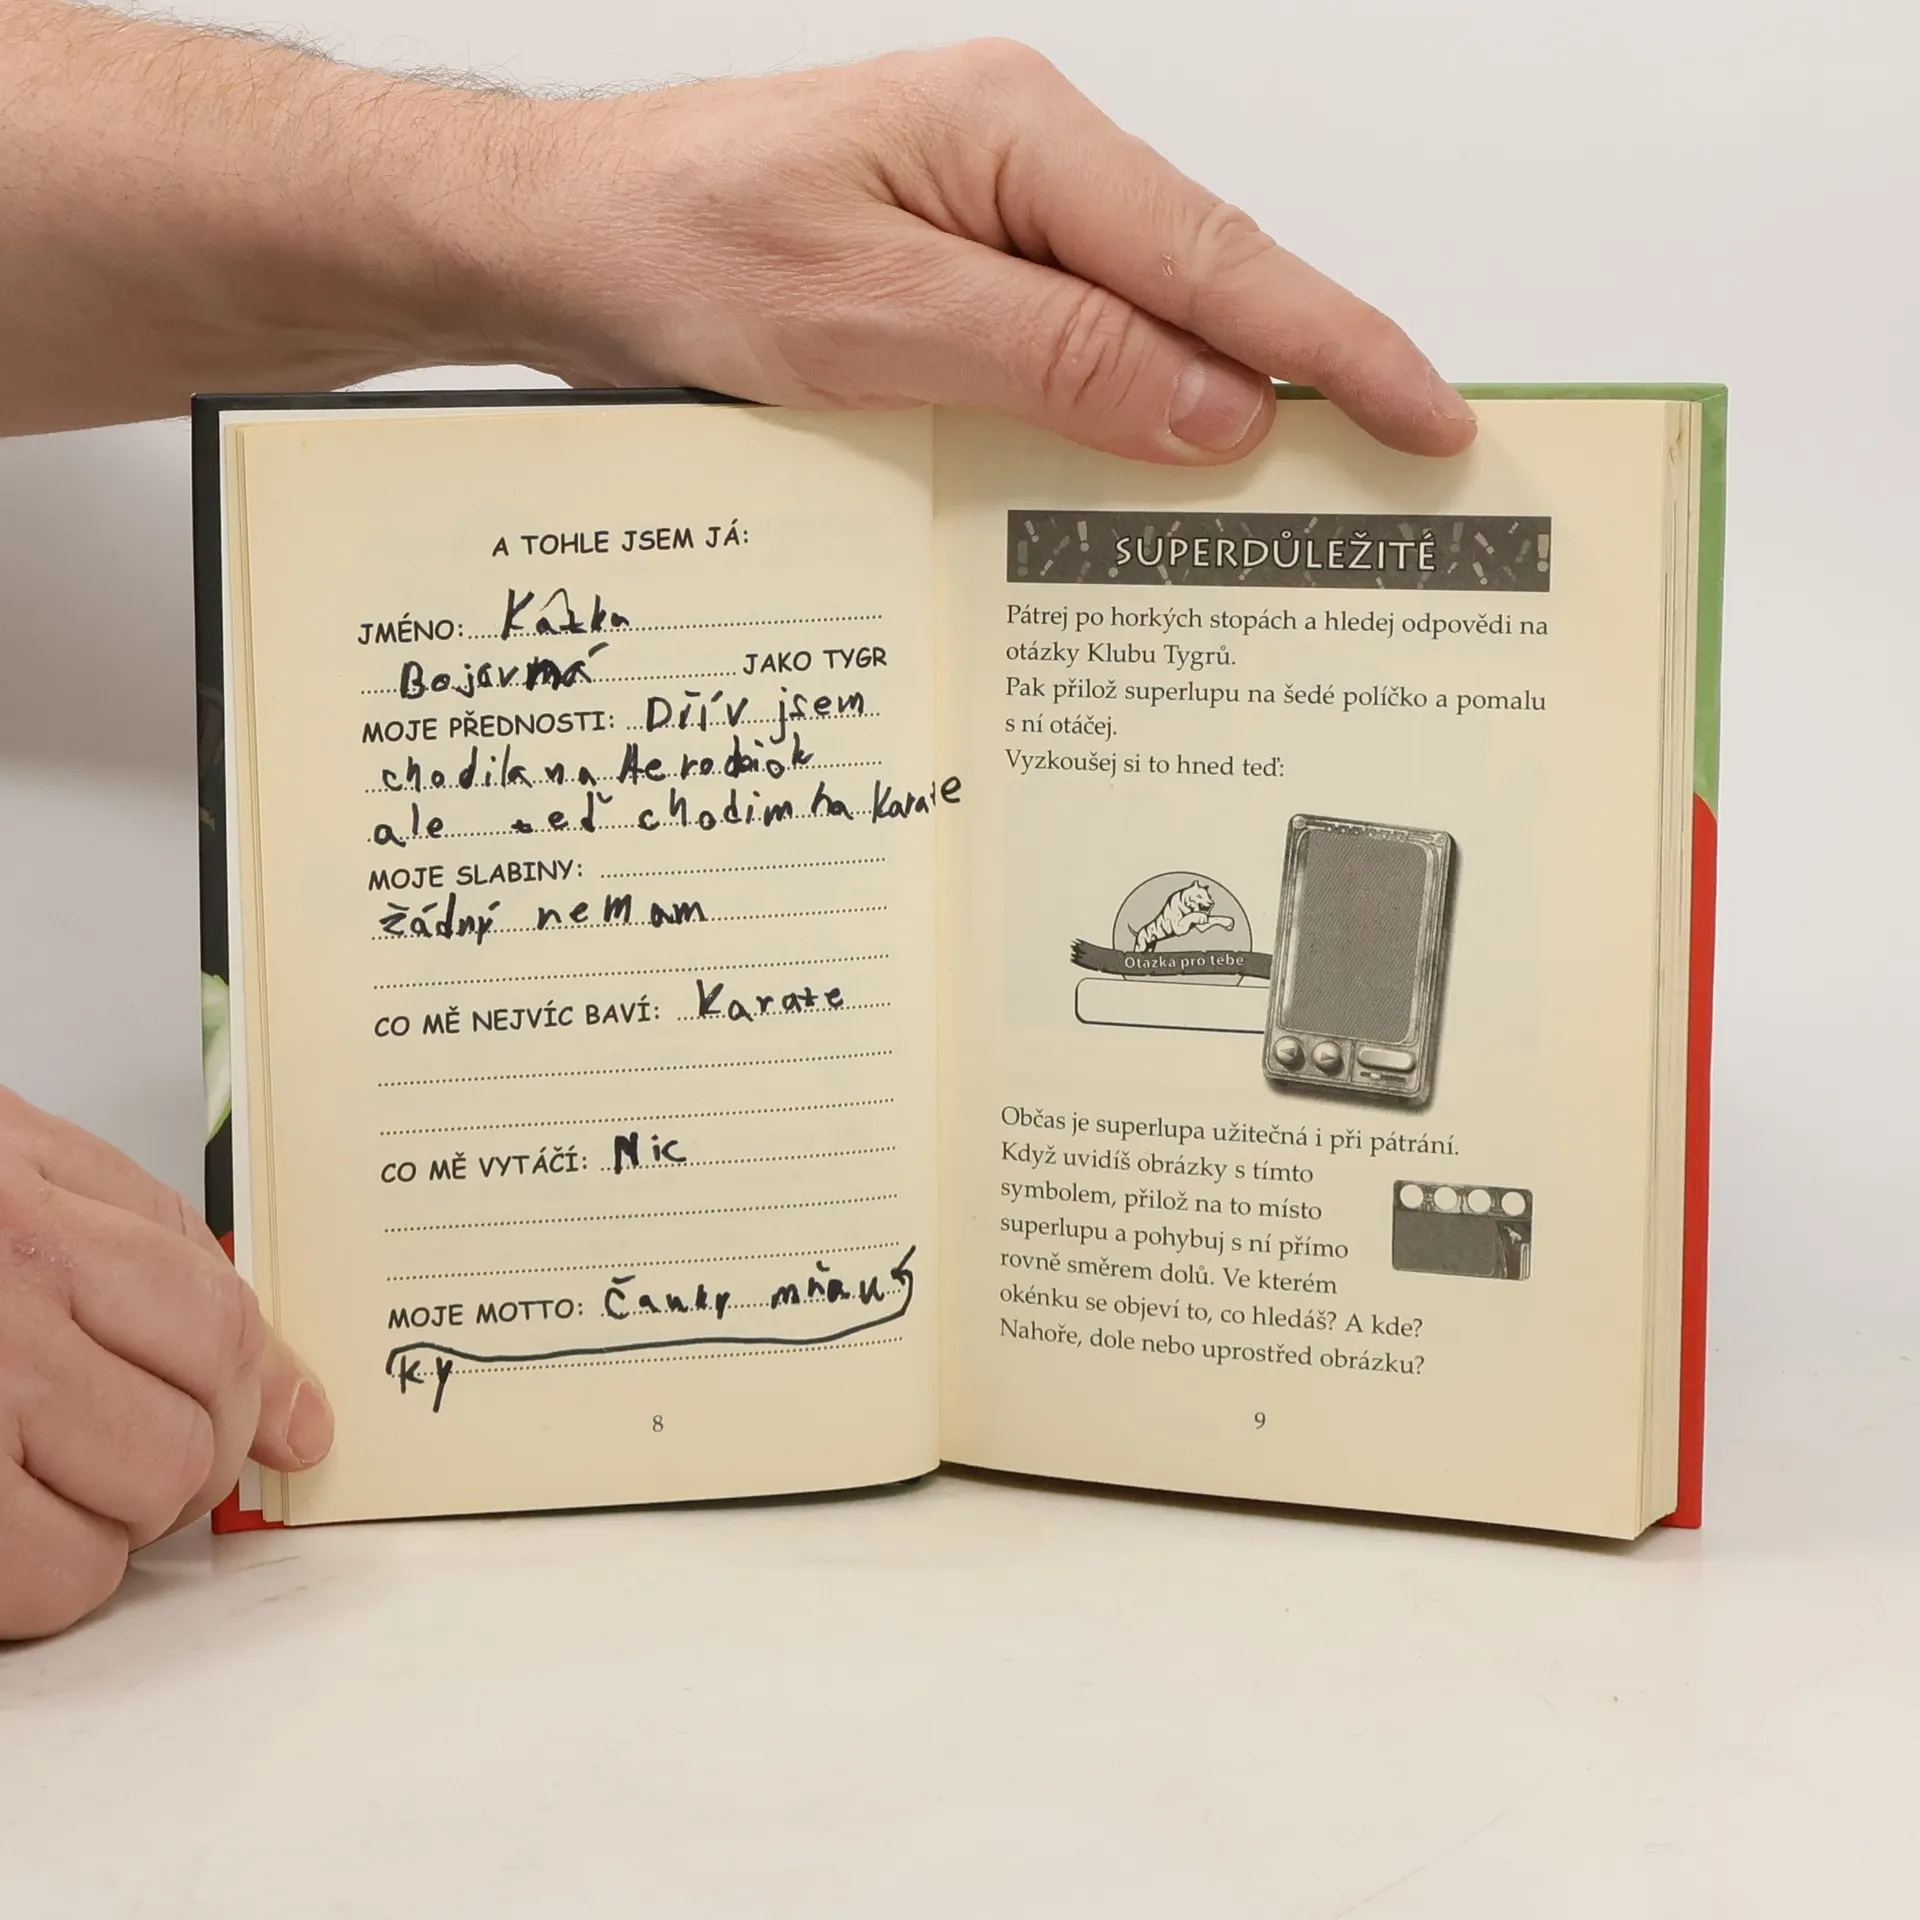 A TOHLE JSEM JÁ:
JMÉNO: Kátka
JAKO TYGR
MOJE PŘEDNOSTI: Dřív jsem
chodila na Aerobiok
ale teď chodim na Karate
MOJE SLABINY:
žádný nemam
CO MĚ NEJVÍC BAVÍ: Karate
CO MĚ VYTÁČÍ: Nic
MOJE MOTTO: mňau
ky
8
SUPERDŮLEŽITÉ
Pátrej po horkých stopách a hledej odpovědi na
otázky Klubu Tygrů.
Pak přilož superlupu na šedé políčko a pomalu
s ní otáčej.
Vyzkoušej si to hned teď:
Otázka pro tebe
Občas je superlupa užitečná i při pátrání.
Když uvidíš obrázky s tímto
symbolem, přilož na to místo
superlupu a pohybuj s ní přímo
rovně směrem dolů. Ve kterém
okénku se objeví to, co hledáš? A kde?
Nahoře, dole nebo uprostřed obrázku?
9